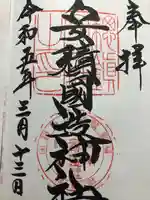 奉拝
安積國造神社
令和五年三月十二日